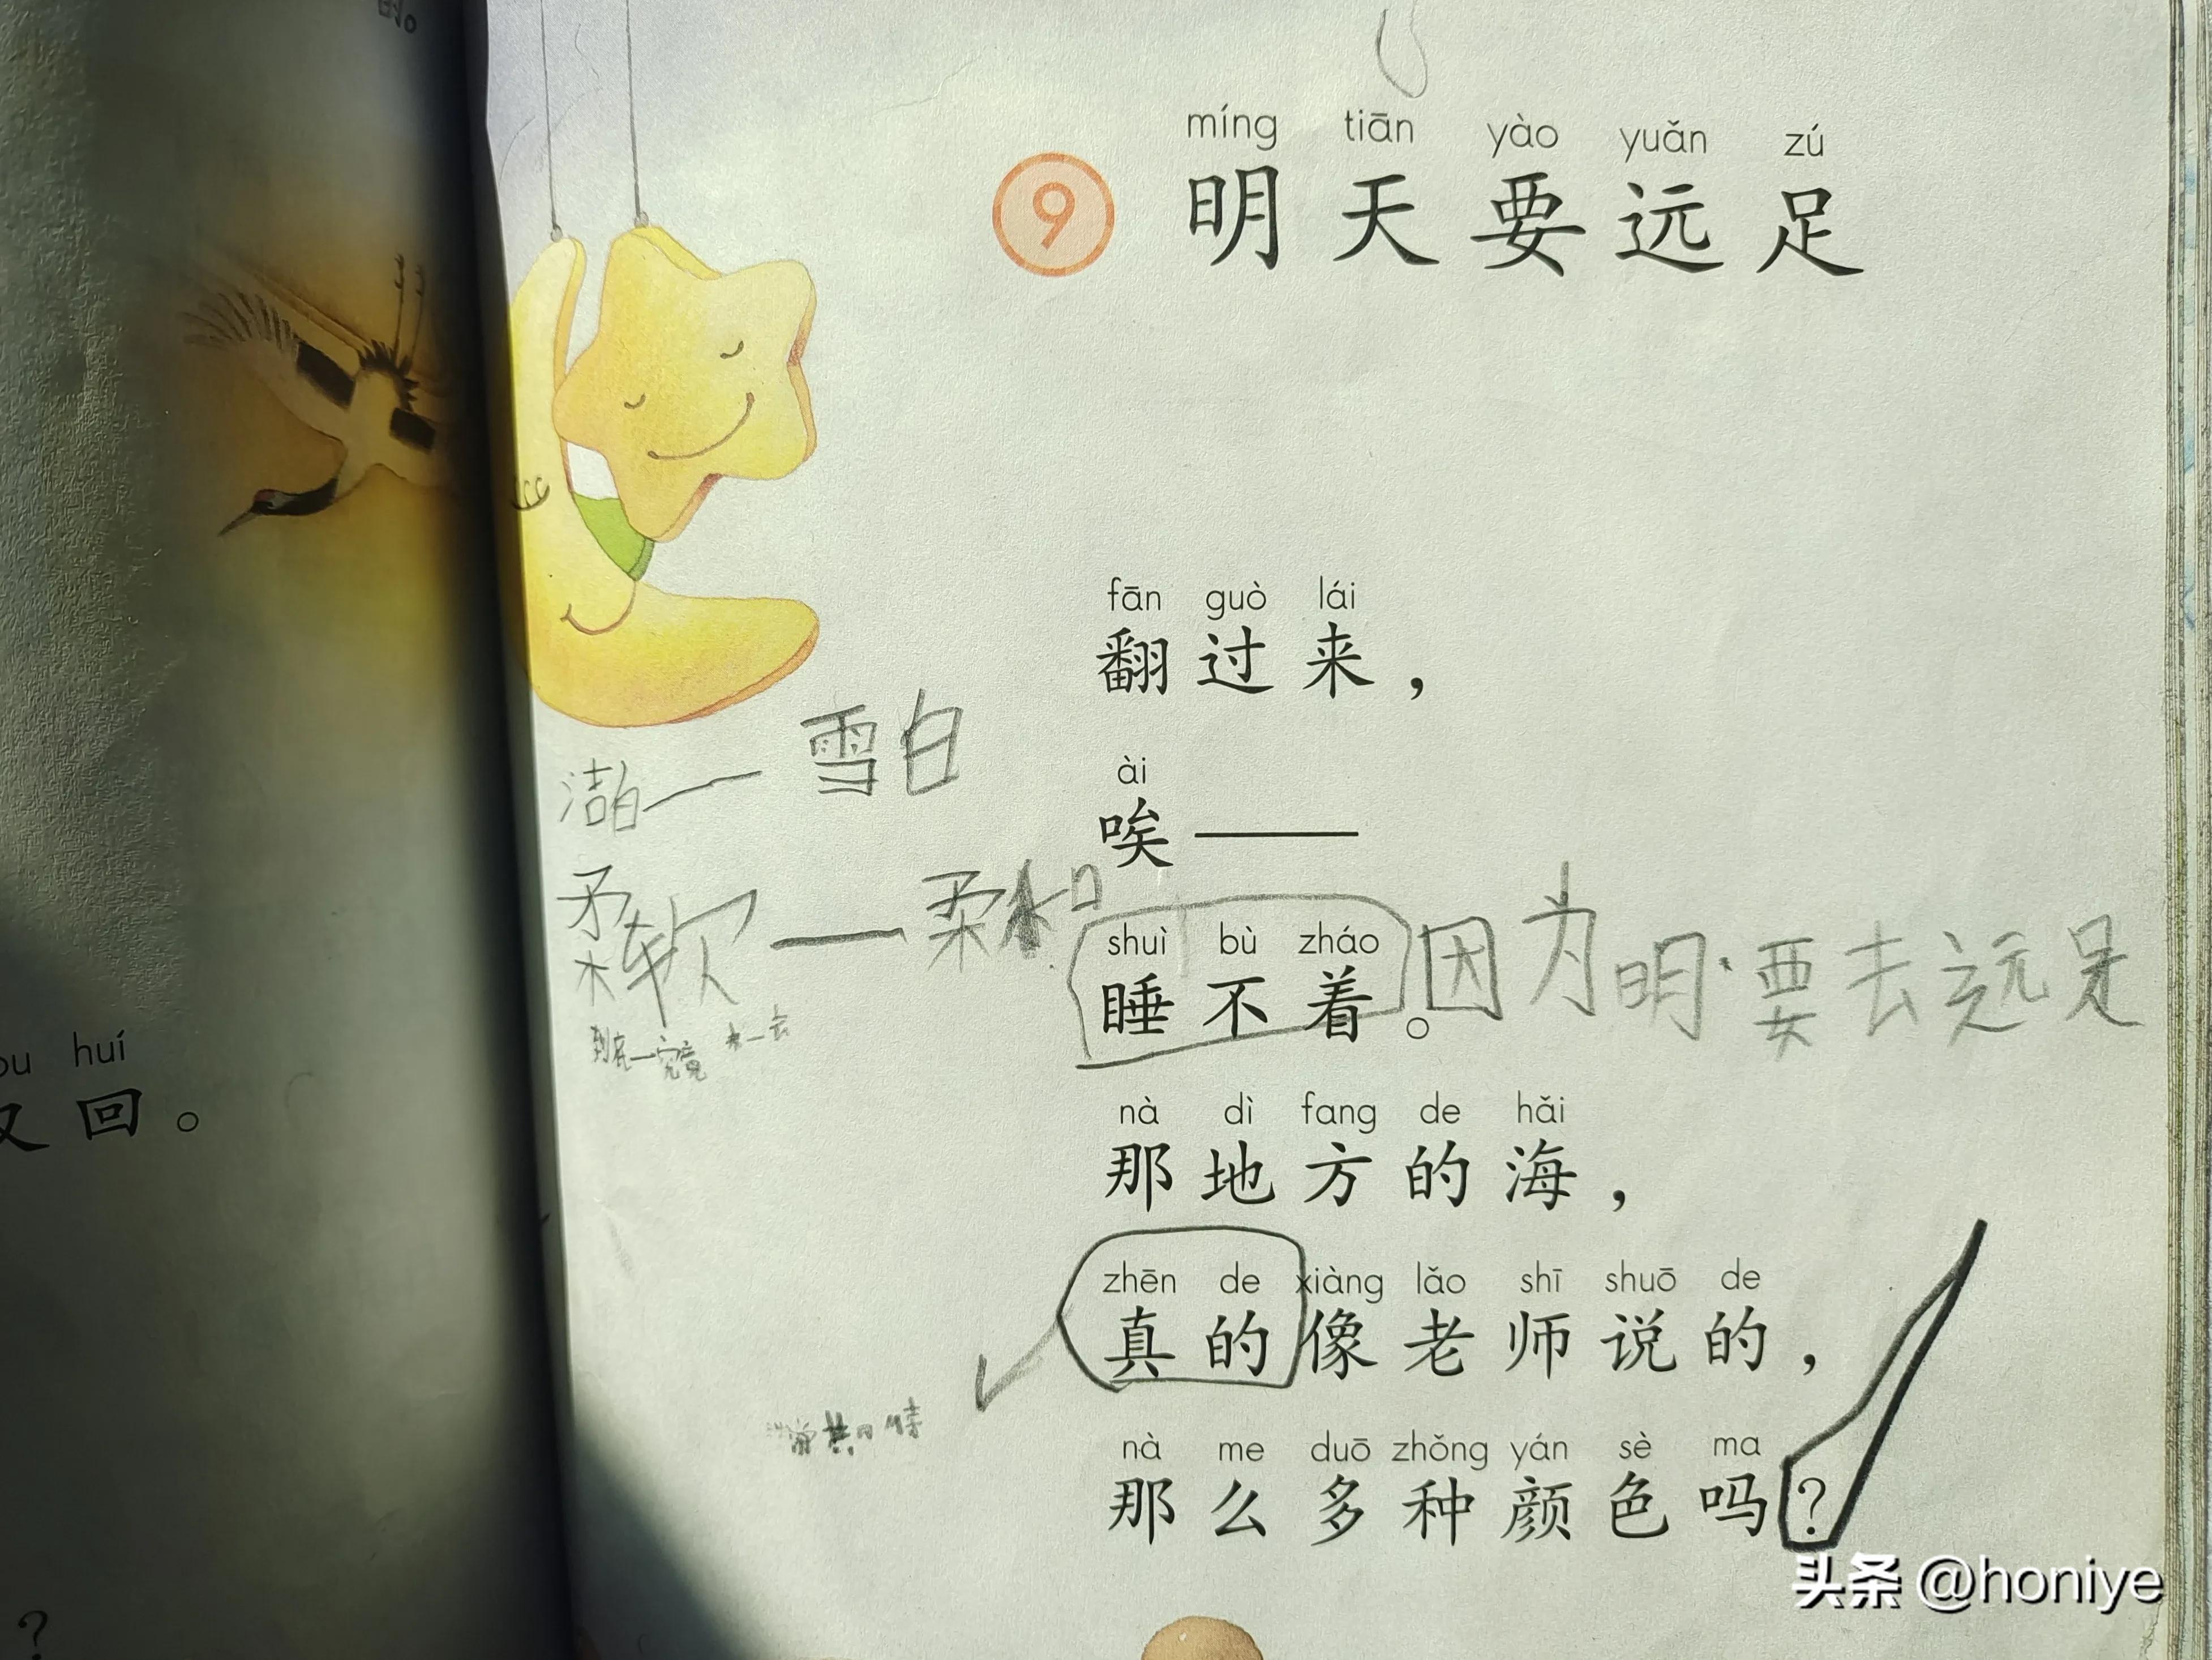 míng tiān yào yuǎn zú
9 明天要远足
fān guò lái
翻过来，
洁白—雪白
ài
唉——
柔软—柔和
shuì bù zháo
睡不着。
因为明·要去远足
到底—究竟
nà dì fang de hǎi
那地方的海，
zhēn de xiàng lǎo shī shuō de
真的像老师说的，
nà me duō zhǒng yán sè ma
那么多种颜色吗？
huí
又回。
？
头条 @honiye